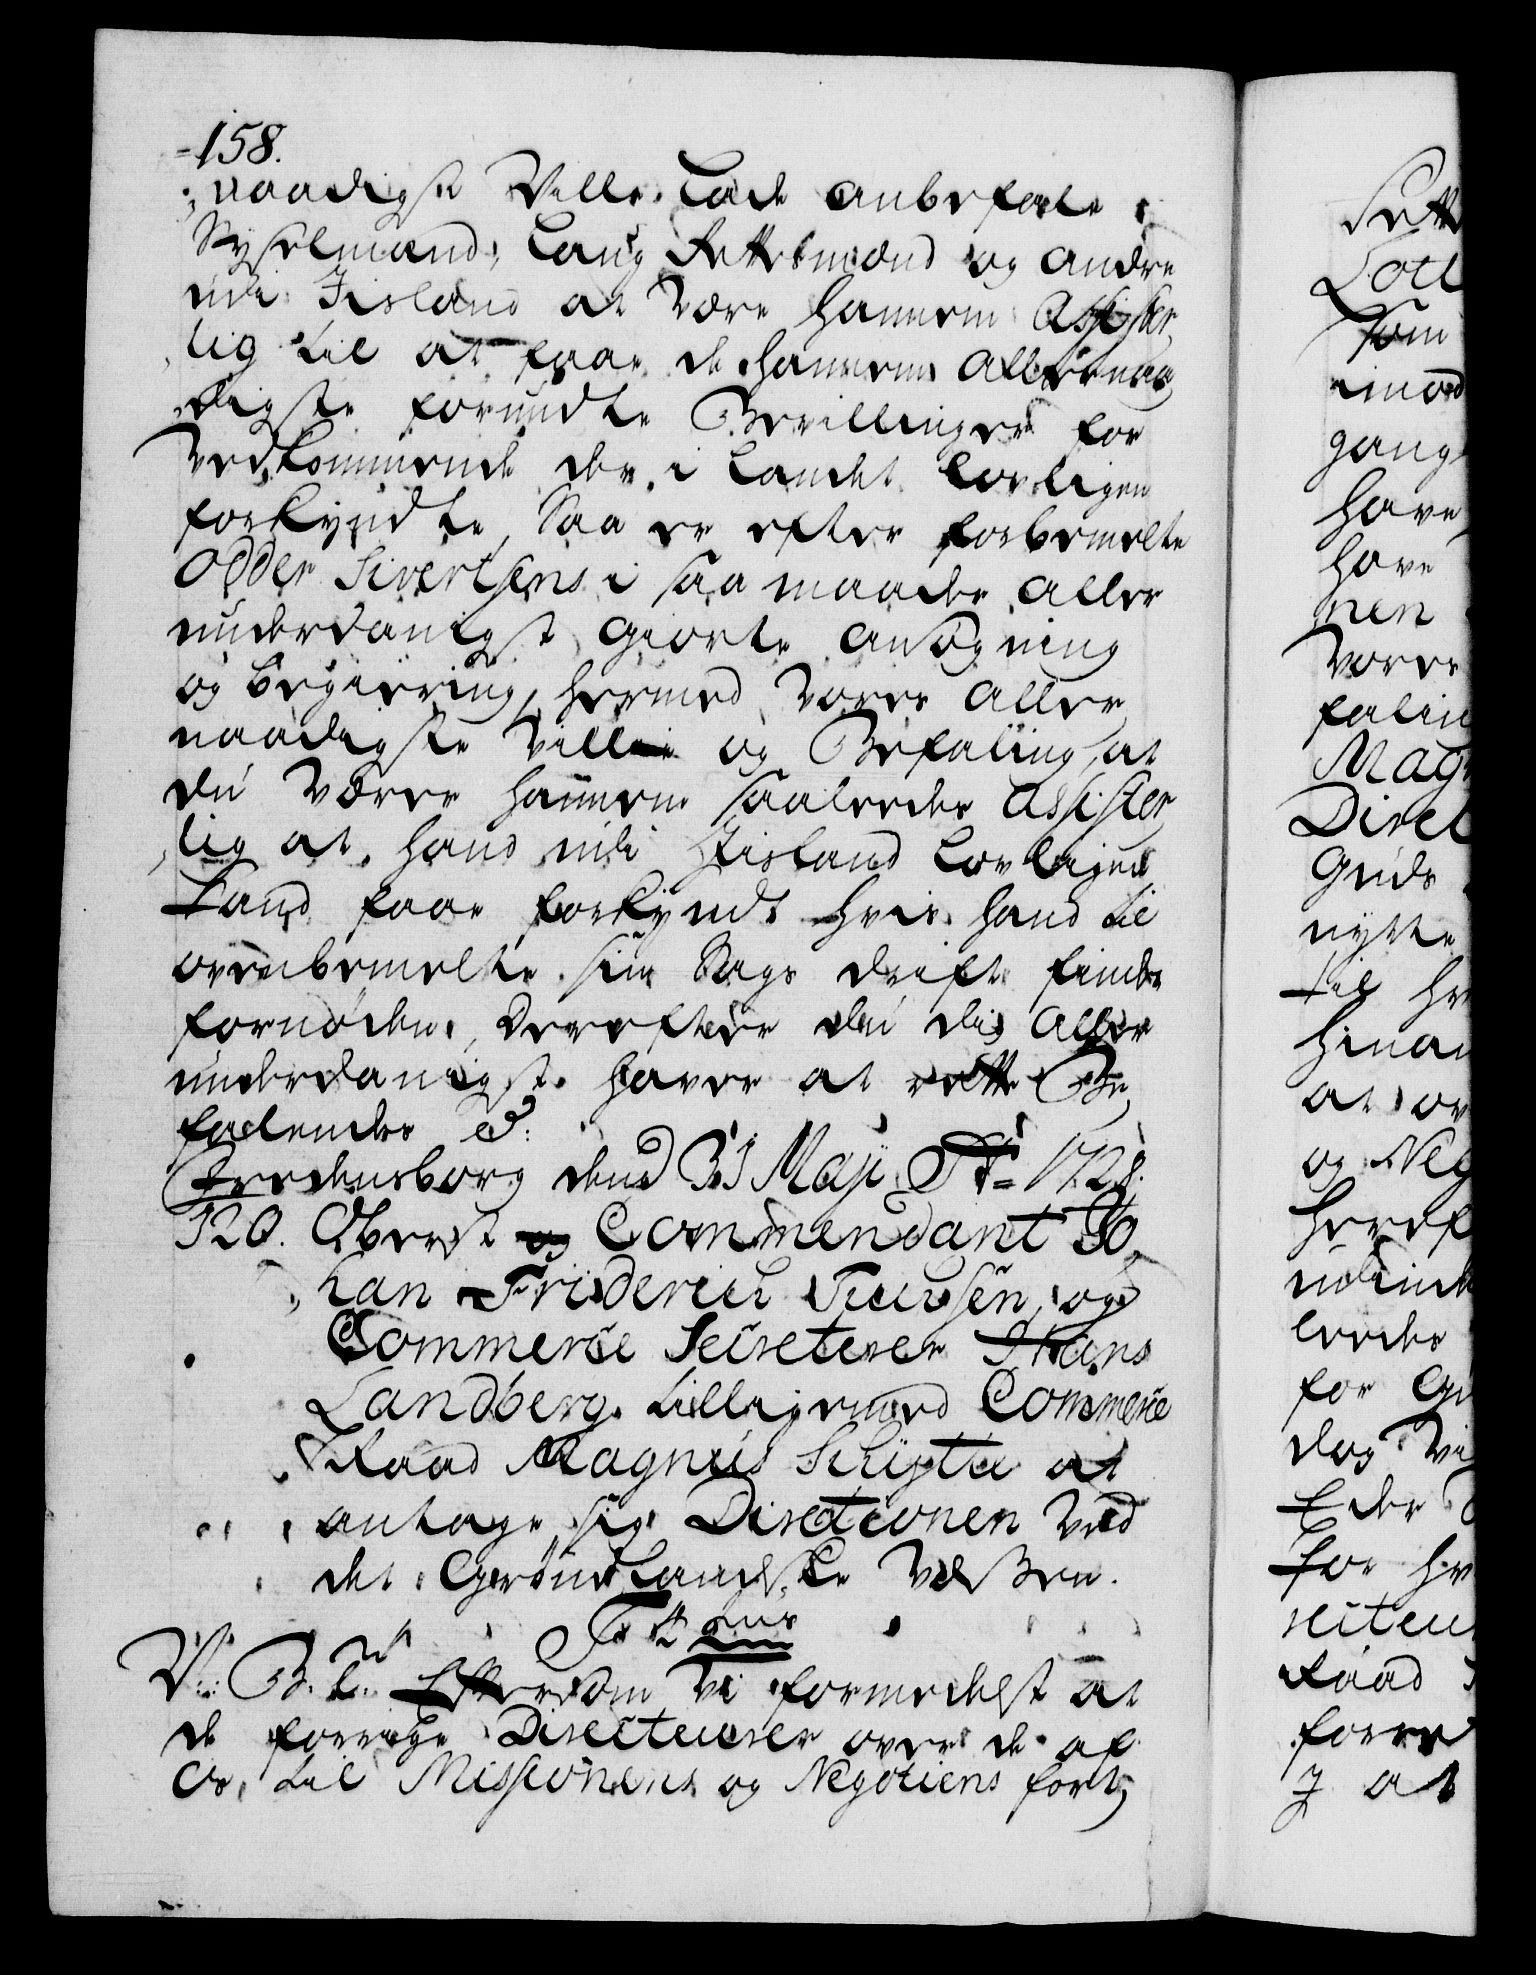 158.
naadigst Ville Lade anbefale
Sysselmænd, Laug Rettesmænd og andre
udi Jisland at være hannem Assister
lig til at faae de hannem Allernaa
digste forundte Bevillinger for
Vedkommende der i Landet Lovligen
forkyndte, Saa er efter forbemelte
Odder Sivertsens i saa maader Aller
underdanigst giorte ansøgning
og begiering, hermed Vores Aller
naadigste Villie og Befaling, at
du Værer hannem saaledes Assister
lig at hand udi Jisland Lovligen
Kand faae forkyndt hvis hand til
ovenbemelte sin Sags drift finder
fornøden, Derefter du dig Aller
underdanigst haver at rette Be
falendes &:
Fredensborg dend 31 Maji Ao 1728.
120. Oberst og Commendant Jo
han Friderich Tuchsen, og
Commerce Secreterer Hans
Landberg tilligemed Commerce
Raad Magnus Schiøtte at
antage sig Directionen Ved
det Grønlandske Væsen.
V: G: t: Eftersom Vi formedelst at
de forrige Directeurer over de af
Os til Missionens og Negotiens fort
Rett
som
imod
gang
have
have
nen
Vores
falin
Mag
Direc
Guds
nytte
til
at
og Neg
for
dog
for
Raad
at